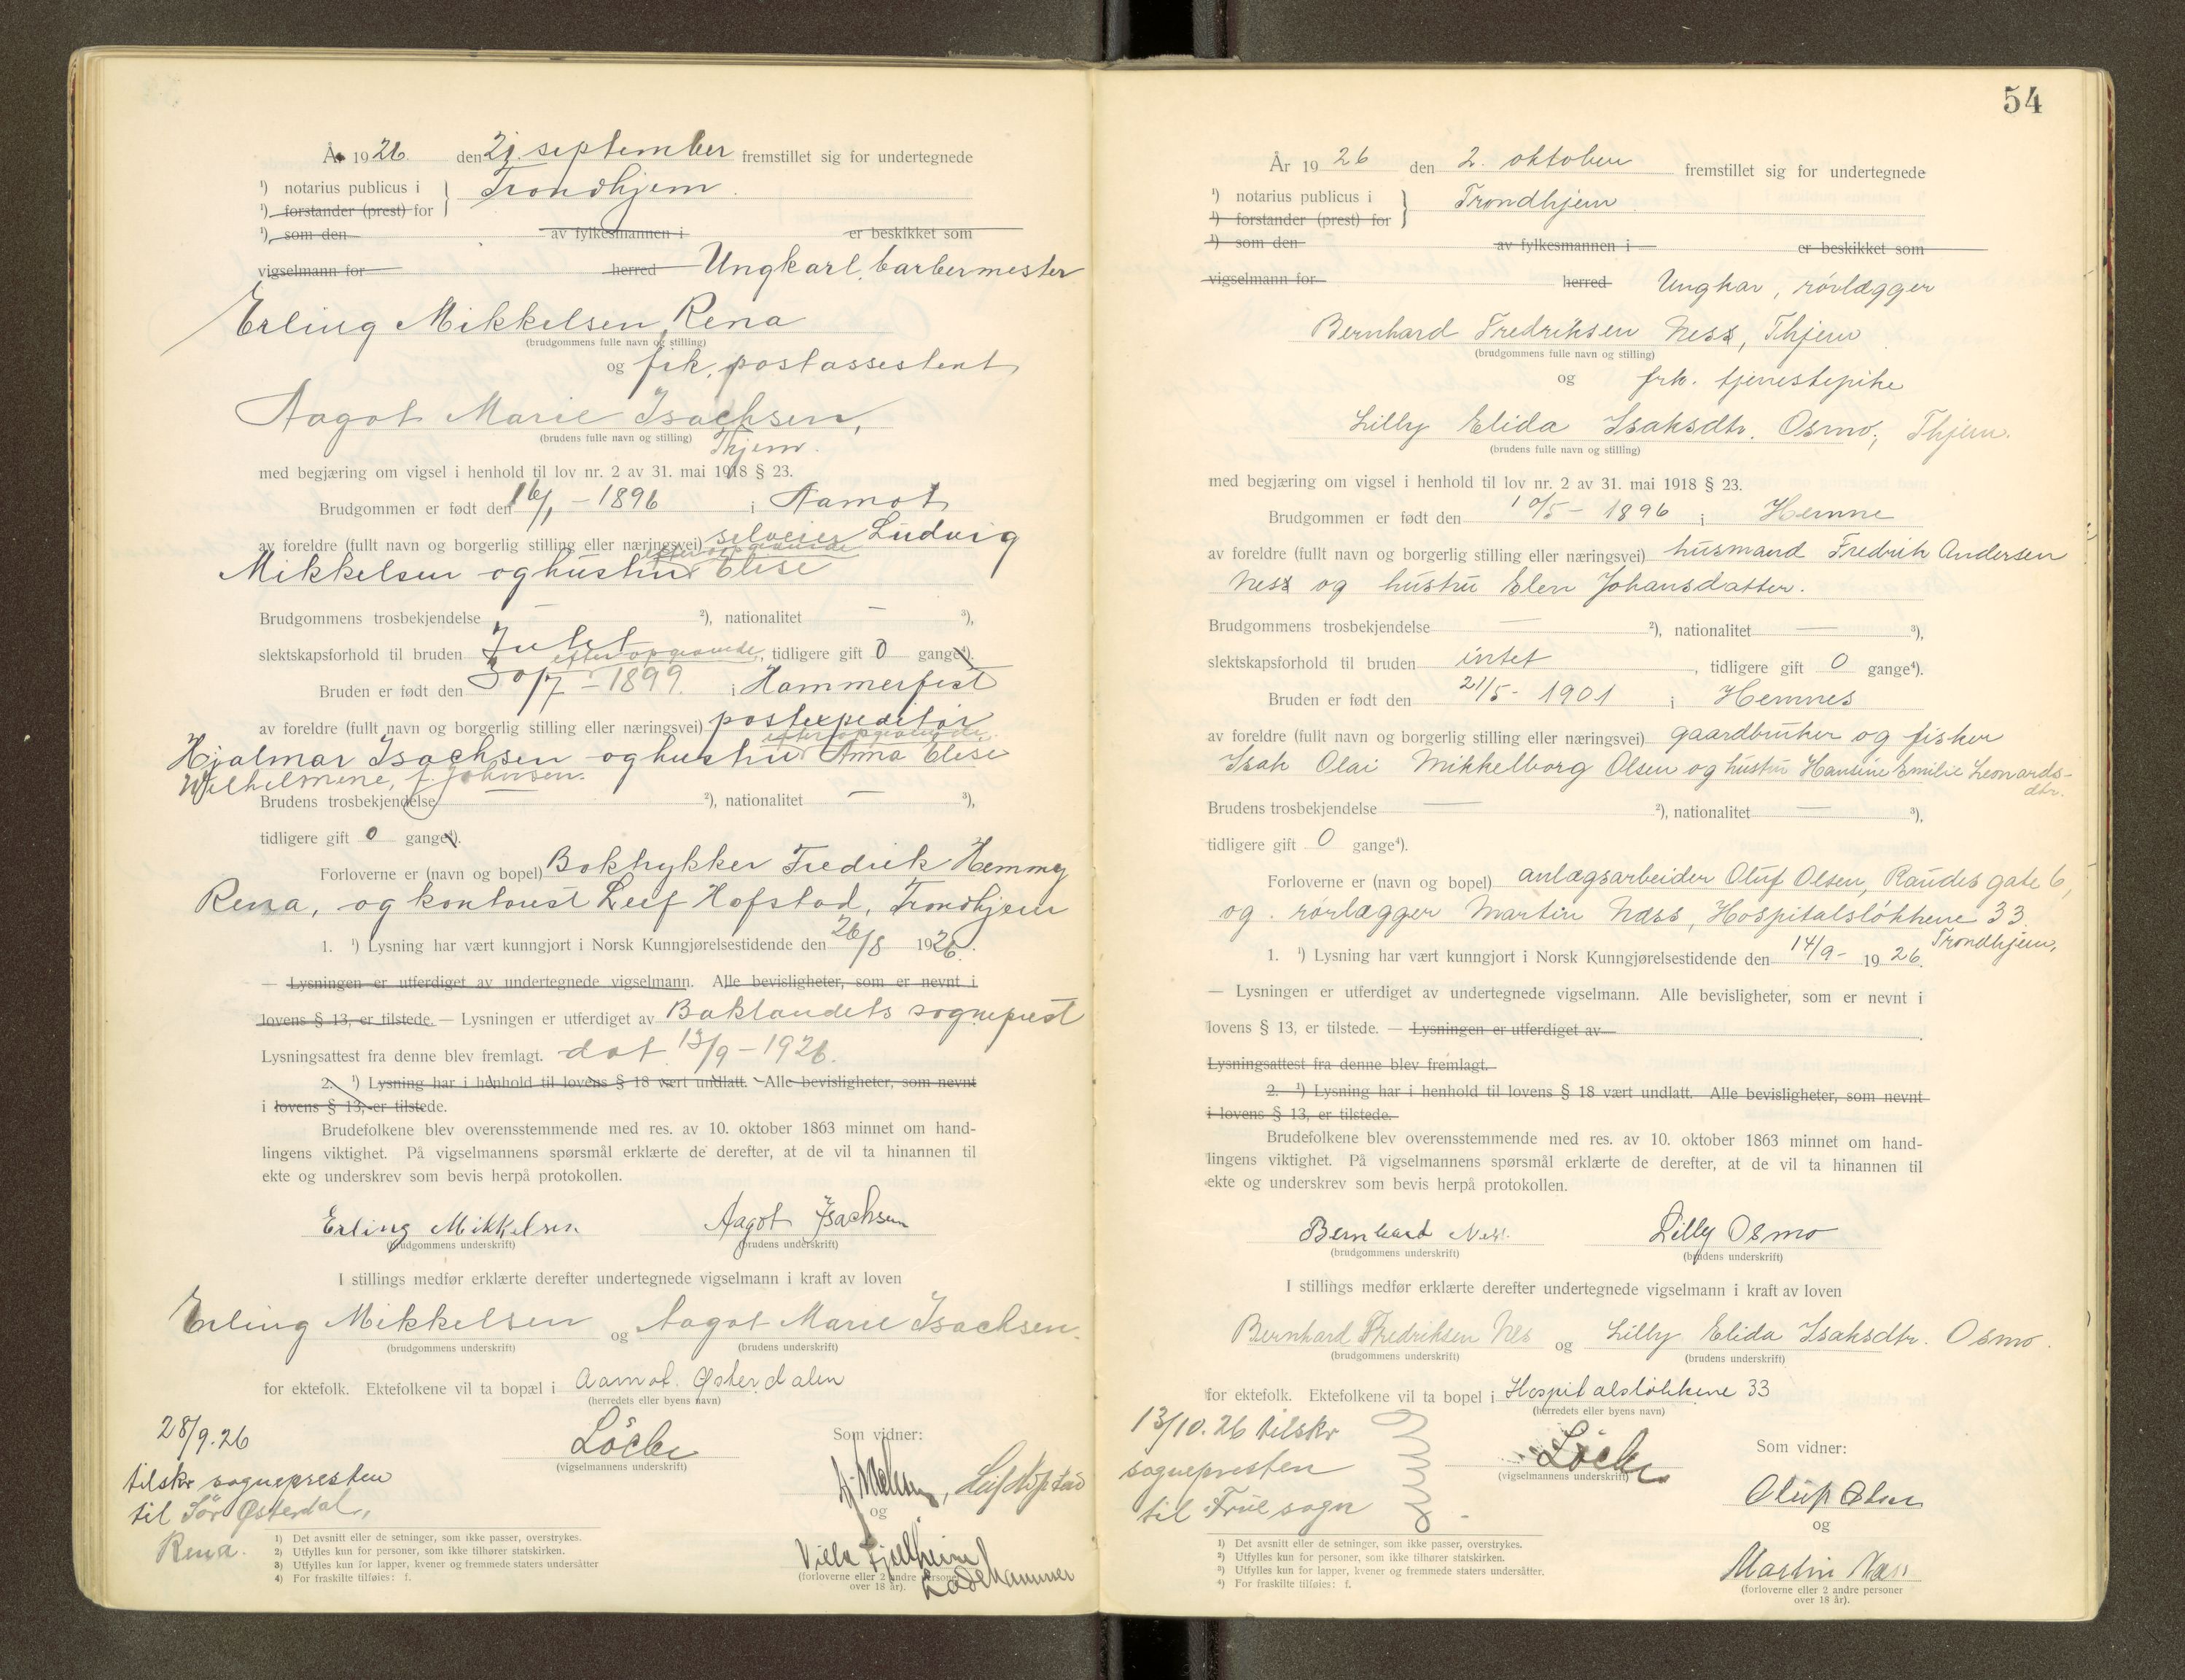 År 1926. den 21. september fremstillet sig for undertegnede
¹) notarius publicus i } Trondhjem.
¹) forstander (prest) for
¹) som den av fylkesmannen i er beskikket som
vigselmann for herred Ungkarl, barbermester
Erling Mikkelsen, Rena
(brudgommens fulle navn og stilling)
og frk, postassestent
Aagot Marie Isachsen,
(brudens fulle navn og stilling) Thjem.
med begjæring om vigsel i henhold til lov nr. 2 av 31. mai 1918 § 23.
Brudgommen er født den 16/1 - 1896 i Aamot
av foreldre (fullt navn og borgerlig stilling eller næringsvei) selveier Ludvig
efter opgivende
Mikkelsen og hustru Elise
Brudgommens trosbekjendelse — ²), nationalitet — ³),
slektskapsforhold til bruden Intet, tidligere gift 0 gange⁴).
efter opgivende
Bruden er født den 30/7 - 1899. i Hammerfest
av foreldre (fullt navn og borgerlig stilling eller næringsvei) postexpeditør
efter opgivende
Hjalmar Isachsen og hustru Anna Elise
Wilhelmine, f. Johnsen.
Brudens trosbekjendelse ²), nationalitet — ³),
tidligere gift 0 gange⁴).
Forloverne er (navn og bopel) Boktrykker Fredrik Hemmey
Rena, og kontorist Leif Hofstad, Trondhjem
1. ¹) Lysning har vært kunngjort i Norsk Kunngjørelsestidende den 26/8 1926.
— Lysningen er utferdiget av undertegnede vigselmann. Alle bevisligheter, som er nevnt i
lovens § 13, er tilstede. — Lysningen er utferdiget av Baklandets sogneprest
Lysningsattest fra denne blev fremlagt. dat 13/9 - 1926.
2. ¹) Lysning har i henhold til lovens § 18 vært undlatt. Alle bevisligheter, som nevnt
i lovens § 13, er tilstede.
Brudefolkene blev overensstemmende med res. av 10. oktober 1863 minnet om hand-
lingens viktighet. På vigselmannens spørsmål erklærte de derefter, at de vil ta hinannen til
ekte og underskrev som bevis herpå protokollen.
Erling Mikkelsen Aagot Isachsen
(brudgommens underskrift) (brudens underskrift)
I stillings medfør erklærte derefter undertegnede vigselmann i kraft av loven
Erling Mikkelsen og Aagot Marie Isachsen.
(brudgommens underskrift) (brudens underskrift)
for ektefolk. Ektefolkene vil ta bopæl i Aamot. Østerdalen
(herredets eller byens navn)
28/9. 26
tilskr sognepresten
til Sör Østerdal,
Rena.
Löchen
(vigselmannens underskrift)
Som vidner:
Leif Hofstad
og
Villa Fjellheim
Ladehammer
(forloverne eller 2 andre personer
over 18 år).
1) Det avsnitt eller de setninger, som ikke passer, overstrykes.
2) Utfylles kun for personer, som ikke tilhører statskirken.
3) Utfylles kun for lapper, kvener og fremmede staters undersåtter
4) For fraskilte tilføies: f.
54
År 1926 den 2. oktober fremstillet sig for undertegnede
¹) notarius publicus i } Trondhjem
¹) forstander (prest) for
¹) som den av fylkesmannen i er beskikket som
vigselmann for herred Ungkar, rörlægger
Bernhard Fredriksen Ness, Thjem
(brudgommens fulle navn og stilling)
og frk. tjenestepike
Lilly Elida Isaksdtr. Osmo, Thjem.
(brudens fulle navn og stilling)
med begjæring om vigsel i henhold til lov nr. 2 av 31. mai 1918 § 23.
Brudgommen er født den 10/5 - 1896 i Hemne
av foreldre (fullt navn og borgerlig stilling eller næringsvei) husmand Fredrik Andersen
Ness og hustru Elen Johansdatter.
Brudgommens trosbekjendelse — ²), nationalitet — ³),
slektskapsforhold til bruden intet, tidligere gift 0 gange⁴).
Bruden er født den 21/5 - 1901 i Hemnes
av foreldre (fullt navn og borgerlig stilling eller næringsvei) gaardbruker og fisker
Isak Olai Mikkelborg Olsen og hustru Hansine Emilie Leonards-
dtr.
Brudens trosbekjendelse — ²), nationalitet — ³),
tidligere gift 0 gange⁴).
Forloverne er (navn og bopel) anlægsarbeider Oluf Olsen, Raudes gate 6,
og rörlægger Martin Næss, Hospitalslökkene 33
Trondhjem,
1. ¹) Lysning har vært kunngjort i Norsk Kunngjørelsestidende den 14/9 - 1926.
— Lysningen er utferdiget av undertegnede vigselmann. Alle bevisligheter, som er nevnt i
lovens § 13, er tilstede. — Lysningen er utferdiget av
Lysningsattest fra denne blev fremlagt.
2. ¹) Lysning har i henhold til lovens § 18 vært undlatt. Alle bevisligheter, som nevnt
i lovens § 13, er tilstede.
Brudefolkene blev overensstemmende med res. av 10. oktober 1863 minnet om hand-
lingens viktighet. På vigselmannens spørsmål erklærte de derefter, at de vil ta hinannen til
ekte og underskrev som bevis herpå protokollen.
Bernhard Ness. Lilly Osmo
(brudgommens underskrift) (brudens underskrift)
I stillings medfør erklærte derefter undertegnede vigselmann i kraft av loven
Bernhard Fredriksen Nes og Lilly Elida Isaksdtr. Osmo.
(brudgommens underskrift) (brudens underskrift)
for ektefolk. Ektefolkene vil ta bopel i Hospitalslökkene 33
(herredets eller byens navn)
13/10. 26 tilskr
sognepresten
til Frue sogn
Löchen
(vigselmannens underskrift)
Som vidner:
Oluf Olsen
og
Martin Næss
(forloverne eller 2 andre personer
over 18 år).
¹) Det avsnitt eller de setninger, som ikke passer, overstrykes.
²) Utfylles kun for personer, som ikke tilhører statskirken.
³) Utfylles kun for lapper, kvener og fremmede staters undersåtter.
⁴) For fraskilte tilføies: f.